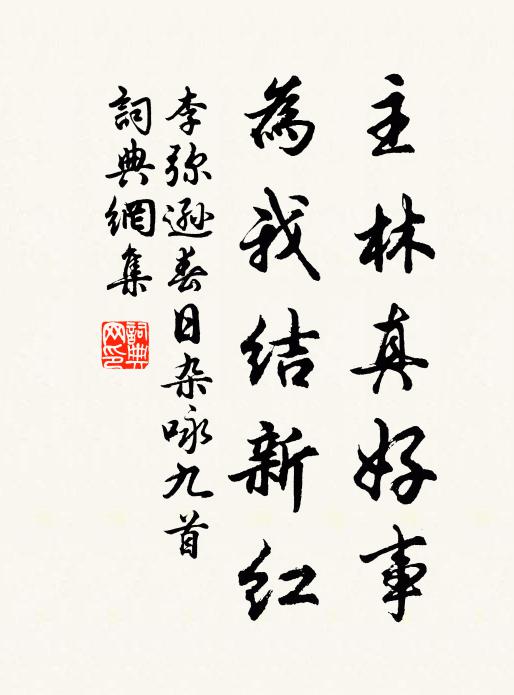 主林真好事
為我结新红
李弥遜春日杂咏九首
詞典網集
詞典网印